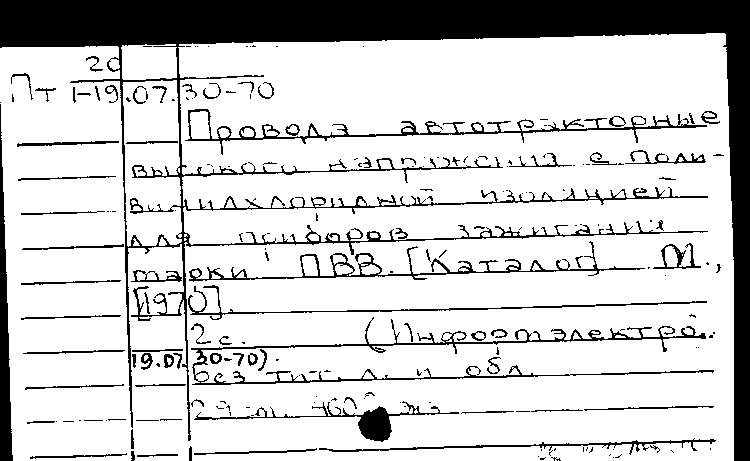 20
Пт 1-19.07.30-70
Провода автотракторные
высокого напряжения с поли-
винилхлоридной изоляцией
для приборов зажигания
марки ПВВ. [Каталог]. М.,
[1970].
2 с. (Информэлектро.
19.07.30-70).
Без тит. л. и обл.